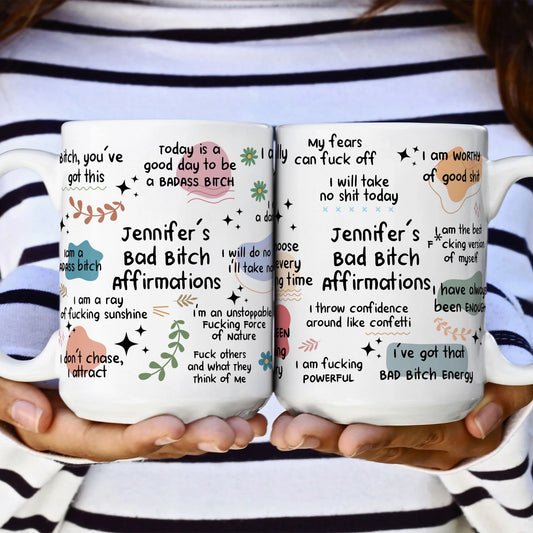 Bitch, you've
got this
Today is a
good day to be
a BADASS BITCH
Jennifer's
Bad Bitch
Affirmations
I am a
BADASS bitch
I will do no
I'll take no
I am a ray
of fucking sunshine
I'm an unstoppable
Fucking Force
of Nature
I don't chase,
I attract
Fuck others
and what They
Think of Me
My fears
can fuck off
I am WORTHY
of good shit
I will take
no shit today
Jennifer's
Bad Bitch
Affirmations
I am the best
F*cking version
of myself
every
ing time
I have always
been ENOUGH
I throw confidence
around like confetti
I am fucking
POWERFUL
i've got that
BAD BITCH ENERGY